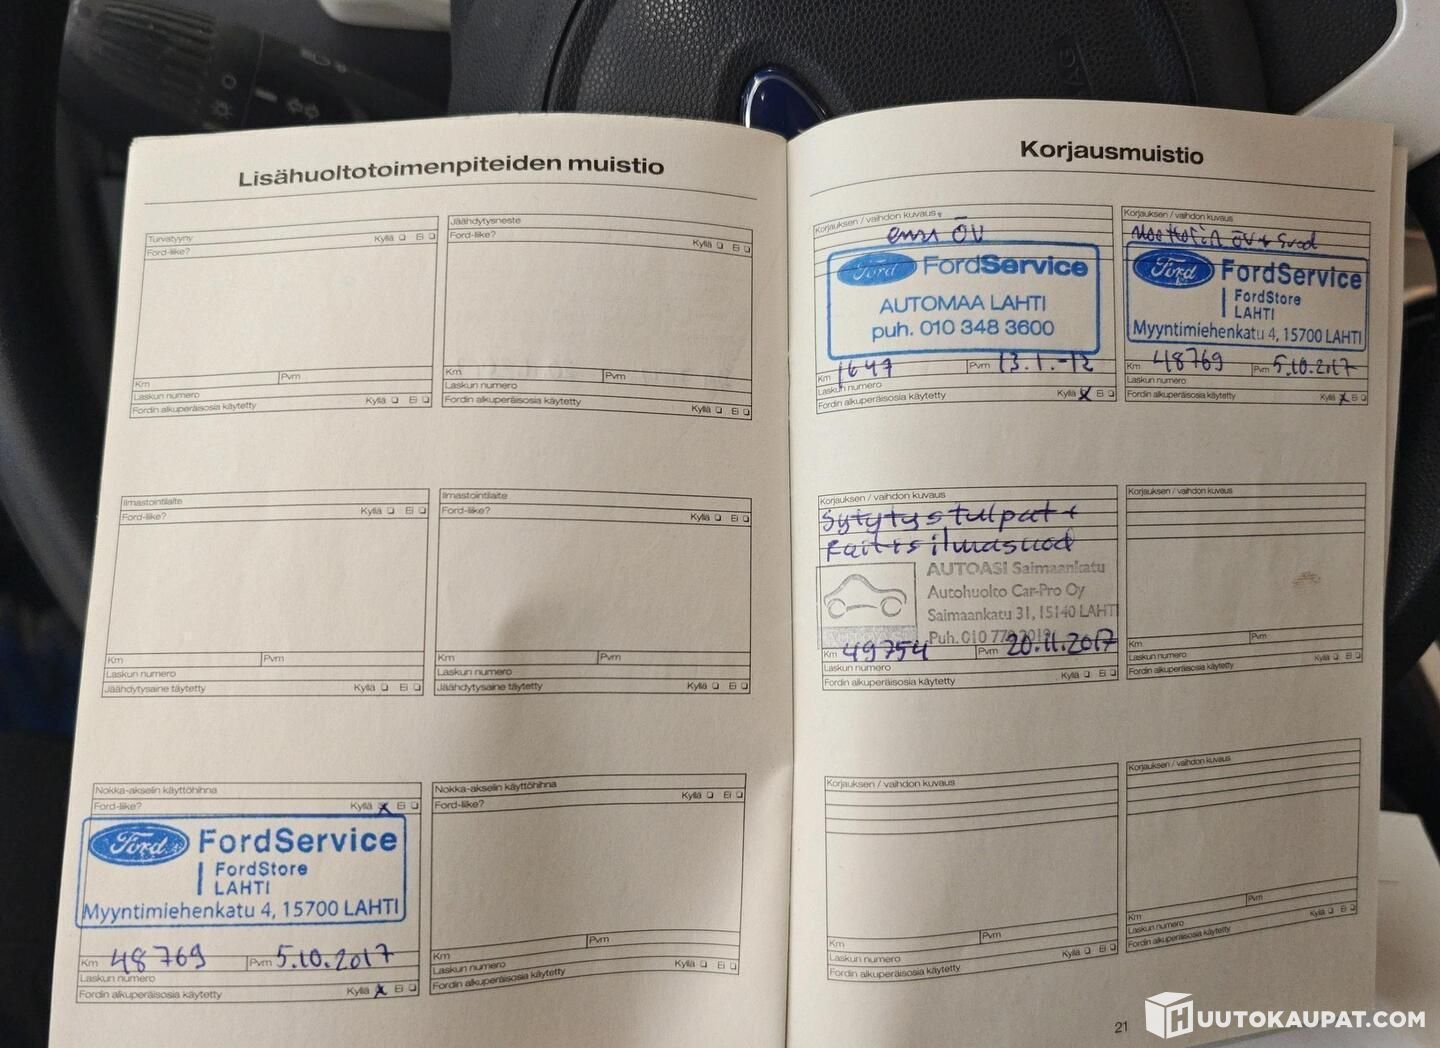 Lisähuoltotoimenpiteiden muistio
Turvatyyny
Kyllä Ei
Ford-liike?
Km Pvm
Laskun numero
Fordin alkuperäisosia käytetty Kyllä Ei
Jäähdytysneste
Ford-liike? Kyllä Ei
Km Pvm
Laskun numero
Fordin alkuperäisosia käytetty Kyllä Ei
Ilmastointilaite
Ford-liike? Kyllä Ei
Km Pvm
Laskun numero
Jäähdytysaine täytetty Kyllä Ei
Ilmastointilaite
Ford-liike? Kyllä Ei
Km Pvm
Laskun numero
Jäähdytysaine täytetty Kyllä Ei
Nokka-akselin käyttöhihna
Ford-liike? Kyllä x Ei
Ford FordService
FordStore
LAHTI
Myyntimiehenkatu 4, 15700 LAHTI
Km 48769 Pvm 5.10.2017
Laskun numero
Fordin alkuperäisosia käytetty Kyllä x Ei
Nokka-akselin käyttöhihna
Ford-liike? Kyllä Ei
Km Pvm
Laskun numero
Fordin alkuperäisosia käytetty Kyllä Ei
Korjausmuistio
Korjauksen / vaihdon kuvaus
ÖV
Ford FordService
AUTOMAA LAHTI
puh. 010 348 3600
Km 1647 Pvm 13.1.-12
Laskun numero
Fordin alkuperäisosia käytetty Kyllä x Ei
Korjauksen / vaihdon kuvaus
Moottorin ÖV+
Ford FordService
FordStore
LAHTI
Myyntimiehenkatu 4, 15700 LAHTI
Km 48769 Pvm 5.10.2017
Laskun numero
Fordin alkuperäisosia käytetty Kyllä x Ei
Korjauksen / vaihdon kuvaus
Sytytystulpat+
Raitisilmasuod
AUTOASI Saimaankatu
Autohuolto Car-Pro Oy
Saimaankatu 31, 15140 LAHTI
AUTOASI Puh. 010 770 2019
Km 49754 Pvm 20.11.2017
Laskun numero
Fordin alkuperäisosia käytetty Kyllä Ei
Korjauksen / vaihdon kuvaus
Km Pvm
Laskun numero
Fordin alkuperäisosia käytetty Kyllä Ei
Korjauksen / vaihdon kuvaus
Km Pvm
Laskun numero
Fordin alkuperäisosia käytetty Kyllä Ei
Korjauksen / vaihdon kuvaus
Km Pvm
Laskun numero
Fordin alkuperäisosia käytetty Kyllä Ei
21
HUUTOKAUPAT.COM